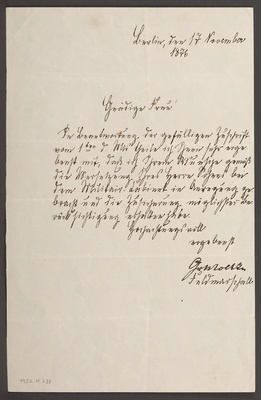 Berlin, den 17 November
1876
Gnädige Frau
In Beantwortung der gefälligen Zuschrift
vom 1ten d. Mts theile ich Ihnen sehr erge
benst mit, daß ich Ihrem Wunsche gemäß
die Versetzung Ihres Herrn Sohnes bei
dem Militair-Cabinet in Anregung ge
bracht und die Zusicherung möglichster Be
rücksichtigung erhalten habe.
Hochachtungsvoll
ergebenst
Gr Moltke
Feldmarschall